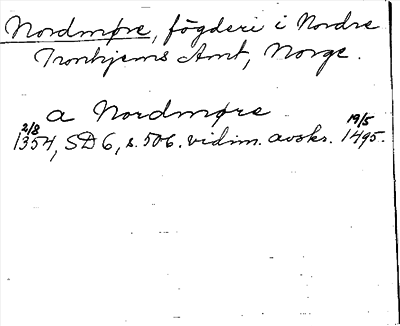 Nordmøre, fögderi i Nordre
Tronhjems Amt, Norge.
a Nordmøre
2/8 19/5
1354, SD 6, s. 506. vidim. avskr. 1495.